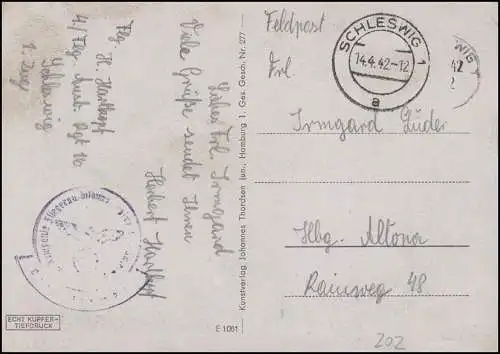 Feldpost
SCHLESWIG 1
14.4.42-12
a
Frl.
Irmgard Lüder
Hbg. Altona
Rainweg 48
202
Liebes Frl. Irmgard
Viele Grüße sendet Ihnen
Herbert Hartkopf
Flg. H. Hartkopf
4./Flg. Ausb. Rgt 16
Schleswig
1. Zug
Kunstverlag Johannes Thordsen jun., Hamburg 1. Ges. Gesch. Nr. 277
E 1061
ECHT KUPFER-
TIEFDRUCK